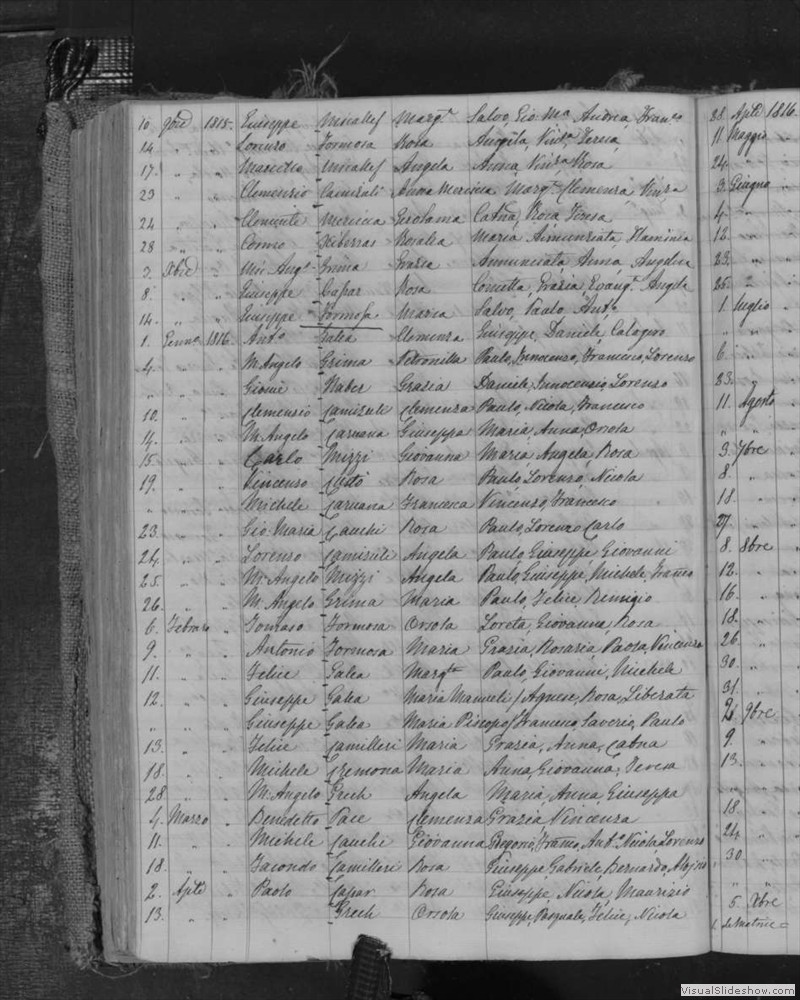 10 9bre 1815. Giuseppe Micallef Margta Salvo, Gio. Ma Andrea, Franco
14 " " Lorenzo Formosa Rosa Angela, Vinza, Teresa
17. " " Marcello Micallef Angela Anna, Vinza, Rosa
23 " " Clemenzio Camisuli Anna Mercieca Margta Clemenza, Vinza
24 " " Clemente Mercieca Gerolama Catna, Rosa, Teresa
28 " " Cosmo Xiberras Rosalea Maria, Annunziata, Flaminia
2. Xbre " Mic. Ango Grima Grazia Annunciata, Anna, Angelica
8. " " Giuseppe Caspar Rosa Concetta, Grazia, Evangta Angela
14. " " Giuseppe Formosa Maria Salvo, Paulo, Anto
1. Gennaro 1816. Anto Galea Clemenza Giuseppe, Daniele, Calogero
4. " " M. Angelo Grima Petronilla Paulo, Innocenzo, Francesco, Lorenzo
" " " Giosue Naber Grazia Daniele, Innocenzio, Lorenzo
10. " " Clemenzio Camisuli Clemenza Paulo, Nicola, Francesco
14. " " M. Angelo Caruana Giuseppa Maria, Anna, Orsola
15. " " Carlo Mizzi Giovanna Maria, Angela, Rosa
19. " " Vincenzo Rosa Paulo, Lorenzo, Nicola
" " " Michele Caruana Francesca Vincenzo, Francesco
23. " " Gio: Maria Cauchi Rosa Paulo, Lorenzo, Carlo
24. " " Lorenzo Camisuli Angela Paulo, Giuseppe, Giovanni
25. " " M. Angelo Mizzi Angela Paulo, Giuseppe, Michele, Franco
26. " " M. Angelo Grima Maria Paulo, Felice, Remigio
6. Febraro " Tomaso Formosa Orsola Loreta, Giovanna, Rosa
9. " " Antonio Formosa Maria Grazia, Rosaria, Paola, Vincenza
11. " " Felice Galea Margta Paulo, Giovanni, Michele
12. " " Giuseppe Galea Maria Manueli / Agnese, Rosa, Liberata
" " " Giuseppe Galea Maria Piscopo / Francesco, Saverio, Paulo
13. " " Felice Camilleri Maria Grazia, Anna, Catna
18. " " Michele Cremona Maria Anna, Giovanna, Teresa
28. " " M. Angelo Grech Angela Maria, Anna, Giuseppa
4. Marzo " Benedetto Pace Clemenza Grazia, Vincenza
11. " " Michele Cauchi Giovanna Gregorio, Franco, Anto Nicola, Lorenzo
18. " " Facondo Camilleri Rosa Giuseppe, Gabriele, Bernardo, Aloisio
2. Aple " Paolo Caspar Rosa Giuseppe, Nicola, Maurizio
13. " Grech Orsola Giuseppe, Pasquale, Felice, Nicola
28. Aple 1816.
11. Maggio "
24. " "
3. Giugno "
4. " "
12. " "
23. " "
25. " "
1. Luglio "
" " "
6. " "
23. " "
11. Agosto "
" " "
3. 7bre "
8. "
18. "
27. "
8. 8bre "
12. "
16. "
18. "
26. "
30. "
31. "
2. 9bre
9. "
13. "
" "
18. "
24. "
30. "
" "
5. Xbre
VisualSlideshow.com